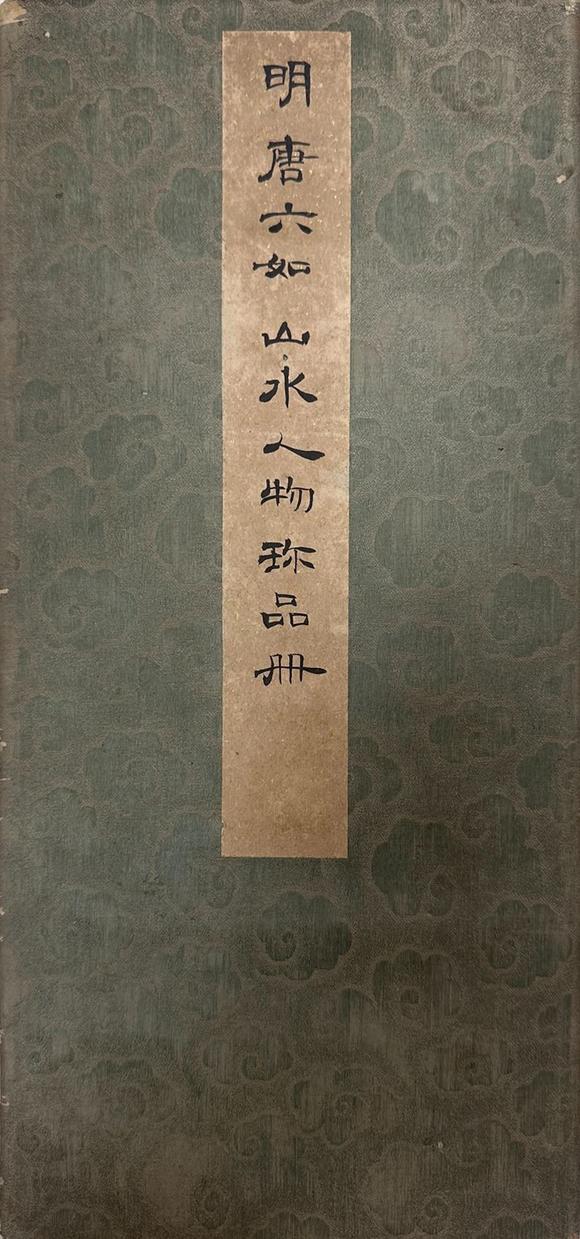 明 唐六如 山水人物珎品冊